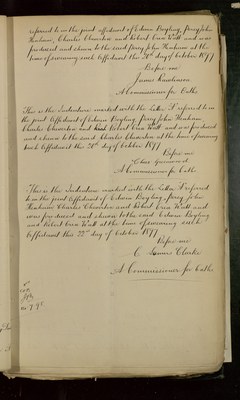 referred to in the joint affidavit of Edwin Bayling, Percy John
Charles Clementson and Robert Owen Watt and was
produced and shown to the said Percy John at the
time of swearing such Affidavit this 20th day of October 1897
Before me
James
A Commissioner for Oaths
This is the Indenture marked with the Letter I referred to in
the joint Affidavit of Edwin Bayling, Percy John
Charles and Robert Owen Watt and was produced
and shown to the said Charles at the time of swearing
such Affidavit this 20th day of October 1897
Before me
A Commissioner for Oaths
This is the Indenture marked with the Letter I referred
to in the joint Affidavit of Edwin Bayling, Percy John
Charles and Robert Owen Watt and
was produced and shown to the said Edwin Bayling
and Robert Owen Watt at the time of swearing such
Affidavit this 22nd day of October 1897
Before me
C James Clarke
A Commissioner for Oaths